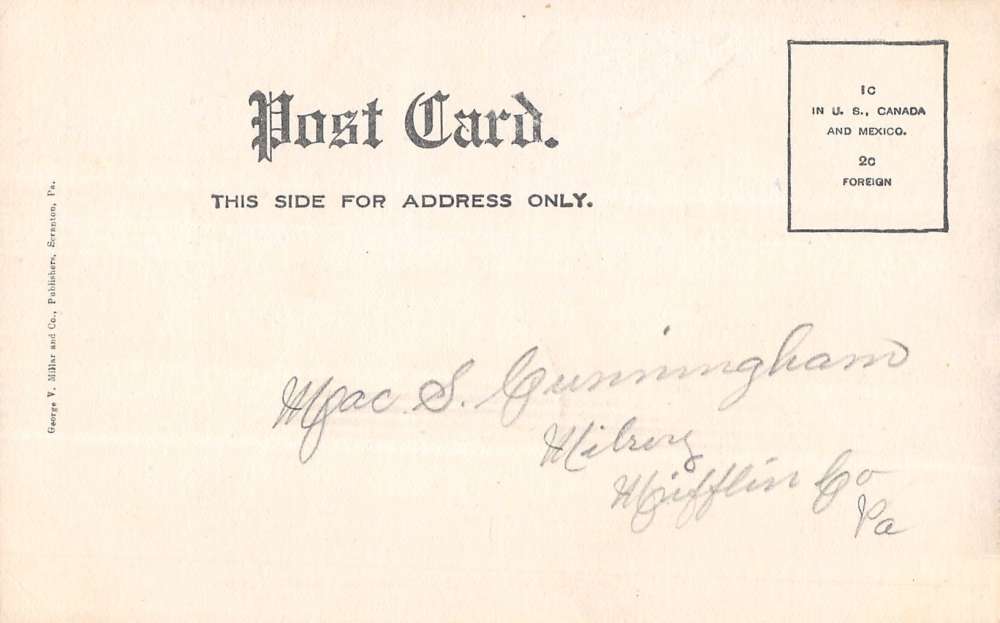 Post Card.
THIS SIDE FOR ADDRESS ONLY.
1c
IN U. S., CANADA
AND MEXICO.
2c
FOREIGN
George V. Millar and Co., Publishers, Scranton, Pa.
Mac. S. Cunningham
Milroy
Mifflin Co
Pa